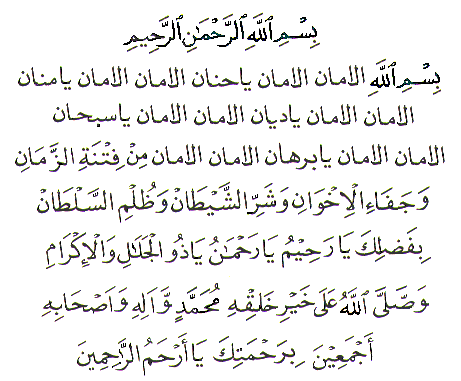 بِسْمِ ٱللَّهِ ٱلرَّحْمَٰنِ ٱلرَّحِيمِ
بِسْمِ ٱللَّهِ الامان الامان ياحنان الامان الامان يامنان
الامان الامان ياديان الامان الامان ياسبحان
الامان الامان يابرهان الامان الامان مِنْ فِتْنَةِ الزَّمَانِ
وَجَفَاءِ الْاِخْوَانِ وَشَرِّ الشَّيْطَانْ وَظُلْمِ السَّلْطَانْ
بِفَضْلِكَ يَا رَحِيْمُ يَا رَحْمٰنُ يَاذُو الْجَلَالِ وَالْاِكْرَامِ
وَصَلَّى اللّٰهُ عَلَى خَيْرِ خَلْقِهِ مُحَمَّدٍ وَّاَلِهِ وَاَصْحَابِهِ
أَجْمَعِيْنَ بِرَحْمَتِكَ يَا أَرْحَمُ الرَّاحِمِينَ